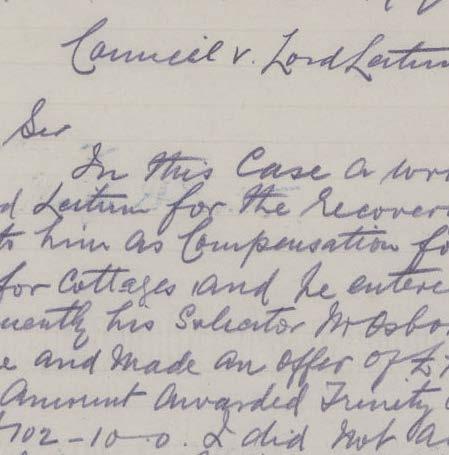 Council v. Lord Leitrim
Sir
In this Case a wri
d Leitrim for the recover
to him as Compensation fo
for Cottages and he entere
quently his Solicitor Mr Osbor
e and made an offer of £
Amount Awarded Trinity
102-10-0. I did not a